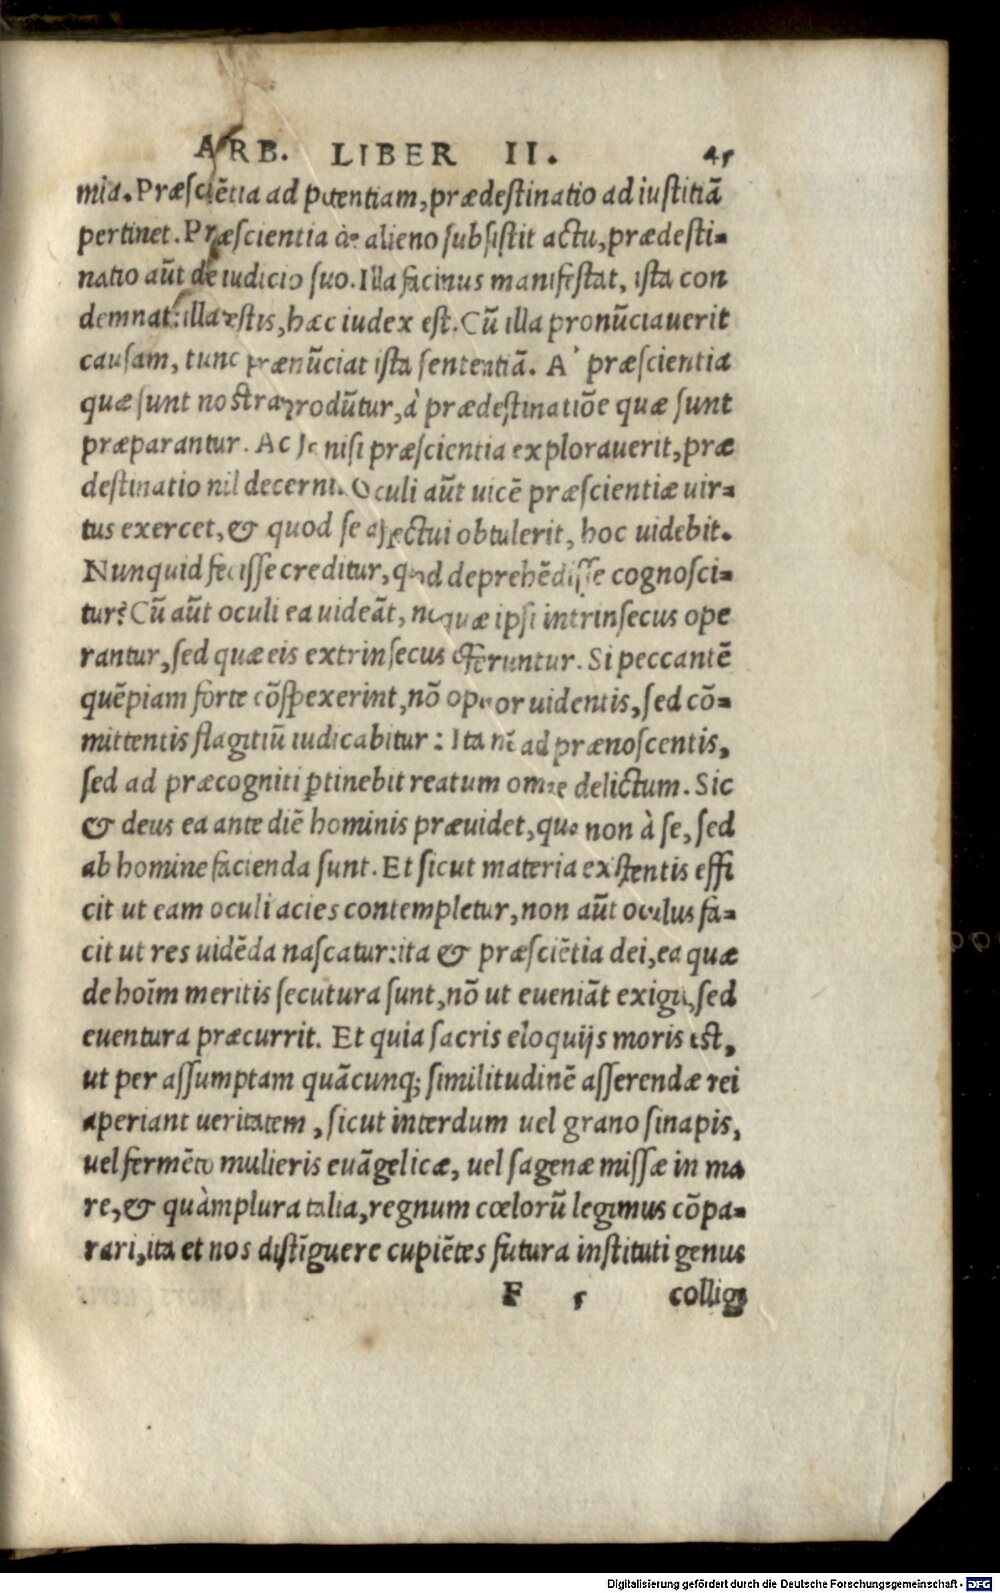 ARB. LIBER II. 45
mia. Præsciẽtia ad potentiam, prædestinatio ad iustitiã
pertinet. Præscientia de alieno subsistit actu, prædesti-
natio aũt de iudicio suo. Illa facinus manifestat, ista con
demnat: illa testis, hæc iudex est. Cũ illa pronũciauerit
causam, tunc prænũciat ista sententiã. A' præscientia
quæ sunt nostra produ̅tur, à prædestinatiõe quæ sunt
præparantur. Ac nisi præscientia explorauerit, præ
destinatio nil decernit. Oculi aũt uicẽ præscientiæ uir-
tus exercet, & quod se aspectui obtulerit, hoc uidebit.
Nunquid fecisse creditur, quod deprehẽdisse cognosci-
tur? Cũ aũt oculi ea uideãt, quæ ipsi intrinsecus ope
rantur, sed quæ eis extrinsecus efferuntur. Si peccantẽ
quẽpiam forte cõspexerint, nõ opus uidentis, sed cõ-
mittentis flagitiũ iudicabitur: Ita ad prænoscentis,
sed ad præcogniti ꝑtinebit reatum omne delictum. Sic
& deus ea ante diẽ hominis præuidet, quæ non à se, sed
ab homine facienda sunt. Et sicut materia existentis effi
cit ut eam oculi acies contempletur, non aũt oculus fa-
cit ut res uidẽda nascatur: ita & præsciẽtia dei, ea quæ
de hoĩm meritis secutura sunt, nõ ut eueniãt exigit, sed
euentura præcurrit. Et quia sacris eloquijs moris est,
ut per assumptam quãcunq; similitudinẽ asserendæ rei
aperiant ueritatem, sicut interdum uel grano sinapis,
uel fermẽto mulieris euãgelicæ, uel sagenæ missæ in ma
re, & quàmplura talia, regnum cœlorũ legimus cõpa-
rari, ita et nos distĩguere cupiẽtes futura instituti genus
F 5 collig
Digitalisierung gefördert durch die Deutsche Forschungsgemeinschaft - DFG